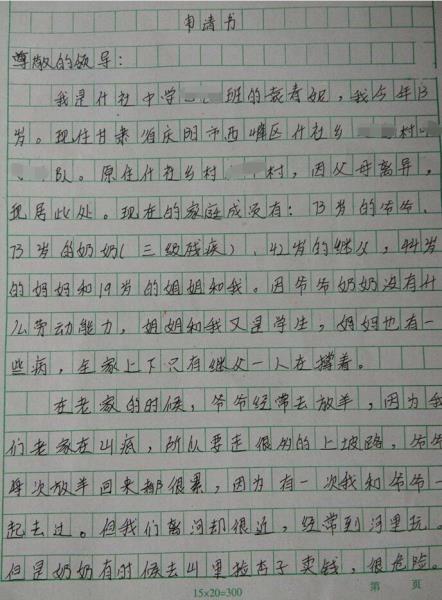 申请书
尊敬的领导：
我是什社中学 班的 ，我今年13
岁。现住甘肃省庆阳市西峰区什社乡 村
队。原住什社乡村 村，因父母离异，
现居此处。现在的家庭成员有：73岁的爷爷、
73岁的奶奶（三级残疾）、42岁的继父，44岁
的妈妈和19岁的姐姐和我。因爷爷奶奶没有什
么劳动能力，姐姐和我又是学生，妈妈也有一
些病，全家上下只有继父一人在撑着。
在老家的时候，爷爷经常去放羊，因为我
们老家在山底，所以要走很多的上坡路，爷爷
每次放羊回来都很累，因为有一次我和爷爷一
起去过。但我们离河却很近，经常到河里玩。
但是奶奶有时候去山里捡杏子卖钱，很危险。
15×20=300 第 页